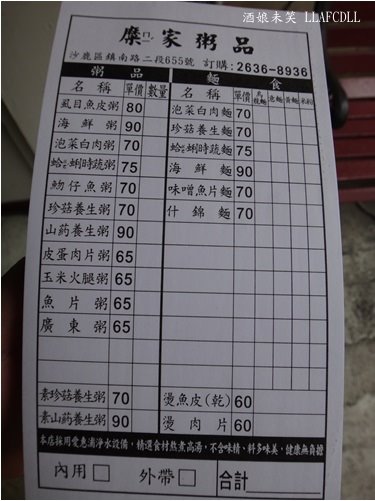 酒娘未笑 LLAFCDLL
糜口一家粥品
沙鹿區鎮南路二段655號 訂購:2636-8936
粥品 麵食
名稱 單價 數量 名稱 單價 烏龍麵 泡麵 黃麵 米粉
虱目魚皮粥 80 泡菜白肉麵 70
海鮮粥 90 珍菇養生麵 70
泡菜白肉粥 70 蛤蜊時蔬麵 75
蛤蜊時蔬粥 75 海鮮麵 90
魩仔魚粥 70 味噌魚片麵 70
珍菇養生粥 70 什錦麵 70
山葯養生粥 90
皮蛋肉片粥 65
玉米火腿粥 65
魚片粥 65
廣東粥 65
素珍菇養生粥 70 燙魚皮(乾) 60
素山葯養生粥 90 燙肉片 60
本店採用愛惠浦淨水設備,精選食材熬煮高湯,不含味精、料多味美、健康無負擔
內用□ 外帶□ 合計